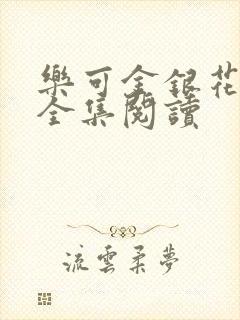 樂可金銀花
全集閱讀
流雲柔夢